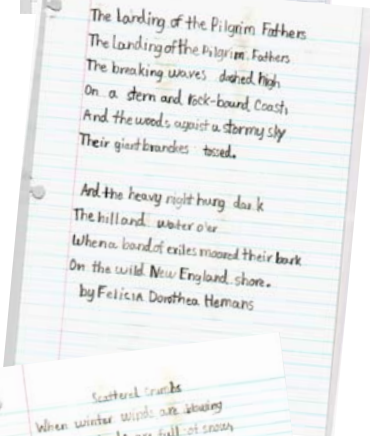 The Landing of the Pilgrim Fathers
The Landing of the Pilgrim Fathers
The breaking waves dashed high
On a stern and rock-bound Coast,
And the woods agaist a stormy sky
Their giant branches tossed.
And the heavy night hung dark
The hill and water o'er
When a band of exiles moored their bark
On the wild New England shore.
by Felicia Dorothea Hemans
Scattered Crumbs
When winter winds are blowing
are full of snow